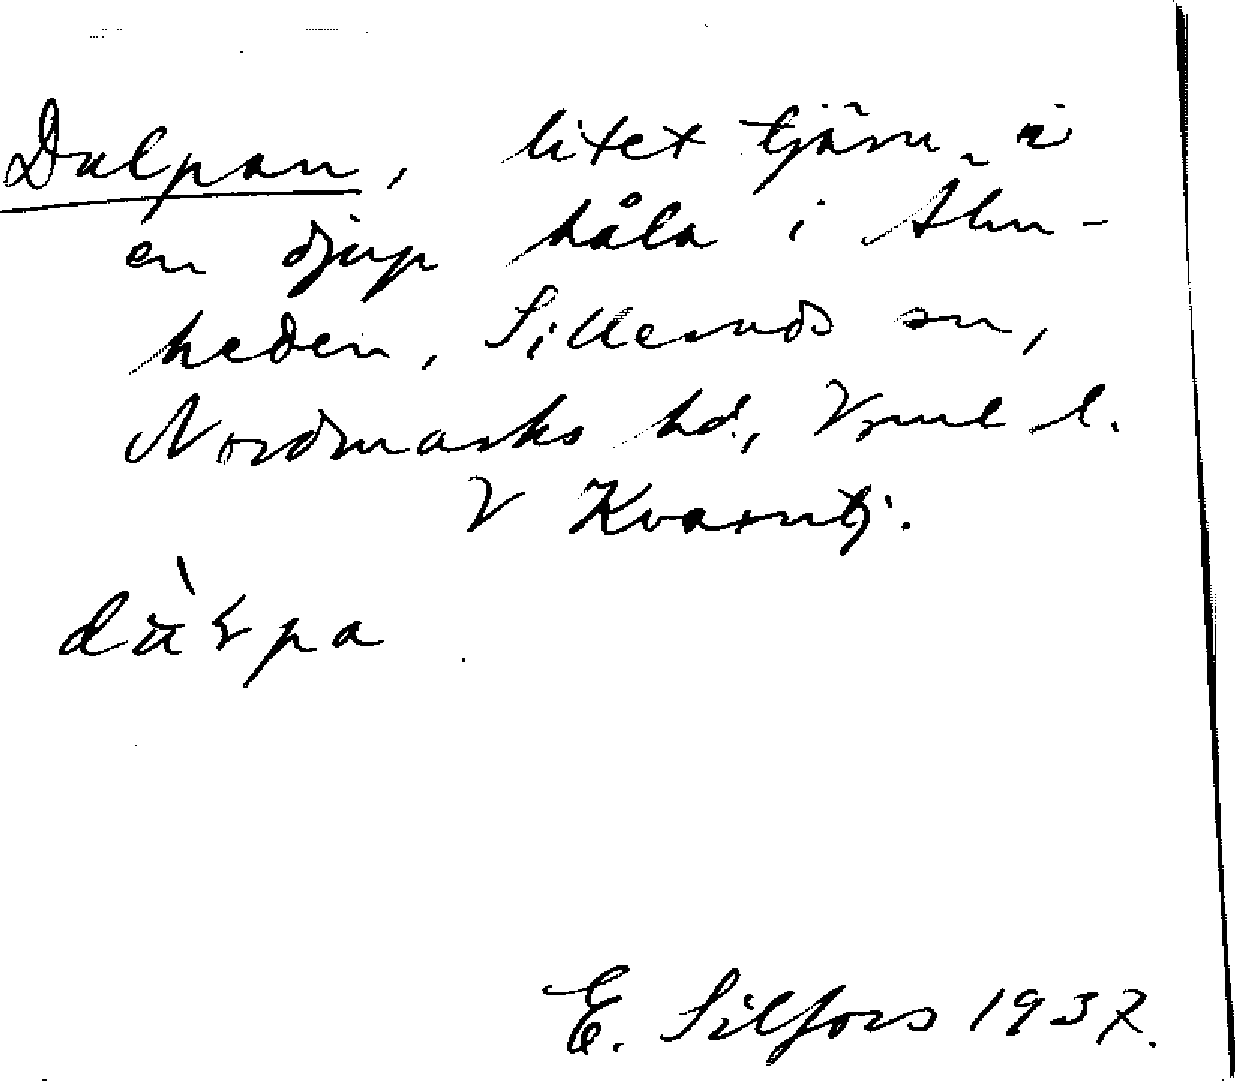 Dalpan, litet tjärn i
en djup håla i Älu-
heden, Silleruds sn,
Nordmarks hd, Vrml l.
V Kvarntj.
E. Silfors 1937.